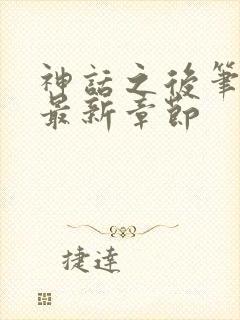 神話之後筆
最新章節
捷達